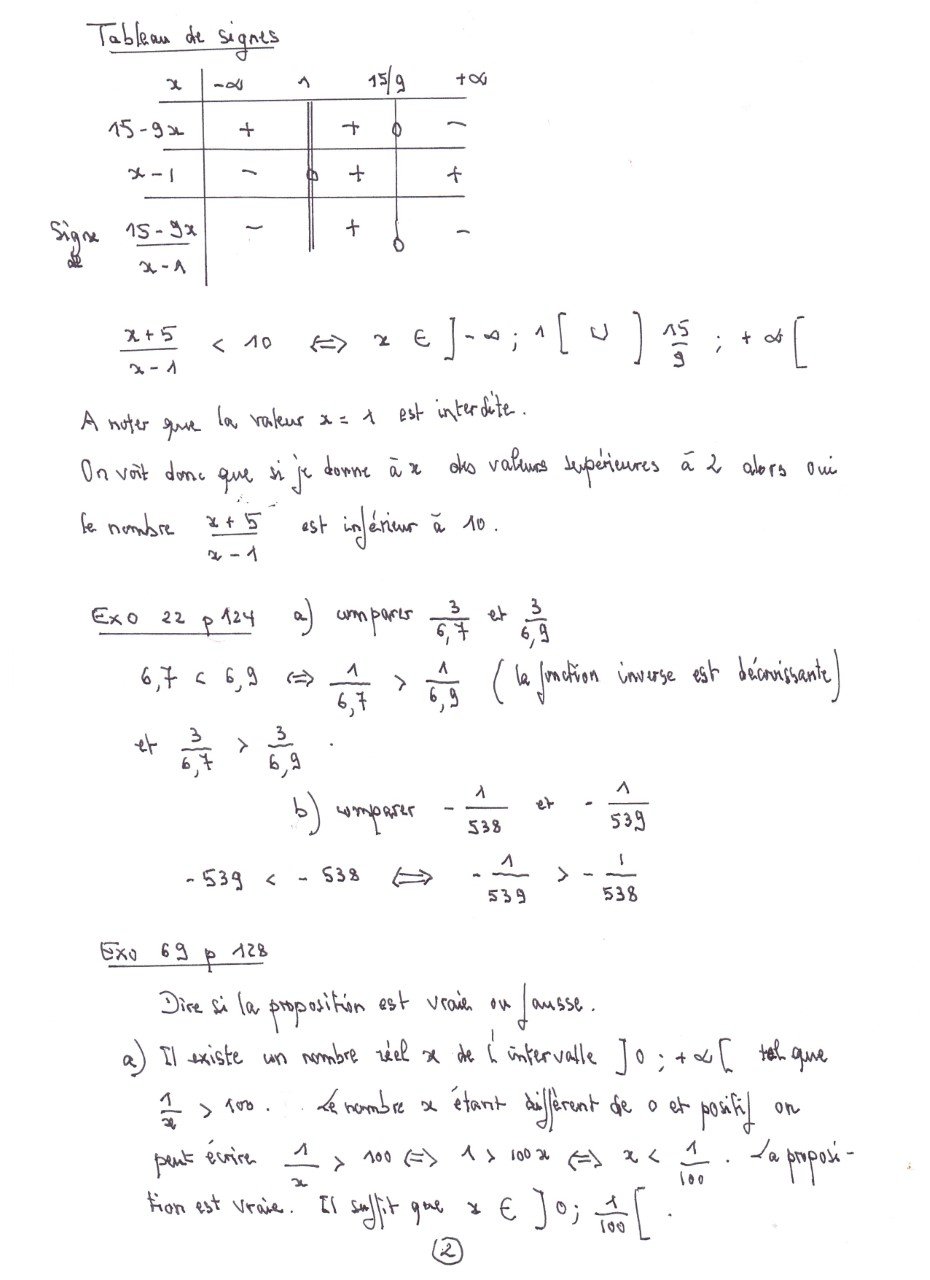 Tableau de signes
x -∞ 1 15/9 +∞
15-9x + + 0 -
x-1 - 0 + +
Signe de (15-9x)/(x-1) - + 0 -
(x+5)/(x-1) < 10 ⇔ x ∈ ]-∞; 1[ ∪ ] 15/9 ; +∞[
A noter que la valeur x = 1 est interdite.
On voit donc que si je donne à x des valeurs supérieures à 2 alors oui
le nombre (x+5)/(x-1) est inférieur à 10.
Exo 22 p 124 a) comparer 3/6,7 et 3/6,9
6,7 < 6,9 ⇔ 1/6,7 > 1/6,9 (la fonction inverse est décroissante)
et 3/6,7 > 3/6,9 .
b) comparer - 1/538 et - 1/539
-539 < -538 ⇔ - 1/539 > - 1/538
Exo 69 p 128
Dire si la proposition est vraie ou fausse.
a) Il existe un nombre réel x de l'intervalle ]0 ; +∞[ tel que
1/x > 100. Le nombre x étant différent de 0 et positif on
peut écrire 1/x > 100 ⇔ 1 > 100x ⇔ x < 1/100 . La proposi-
tion est vraie. Il suffit que x ∈ ]0; 1/100[ .
2